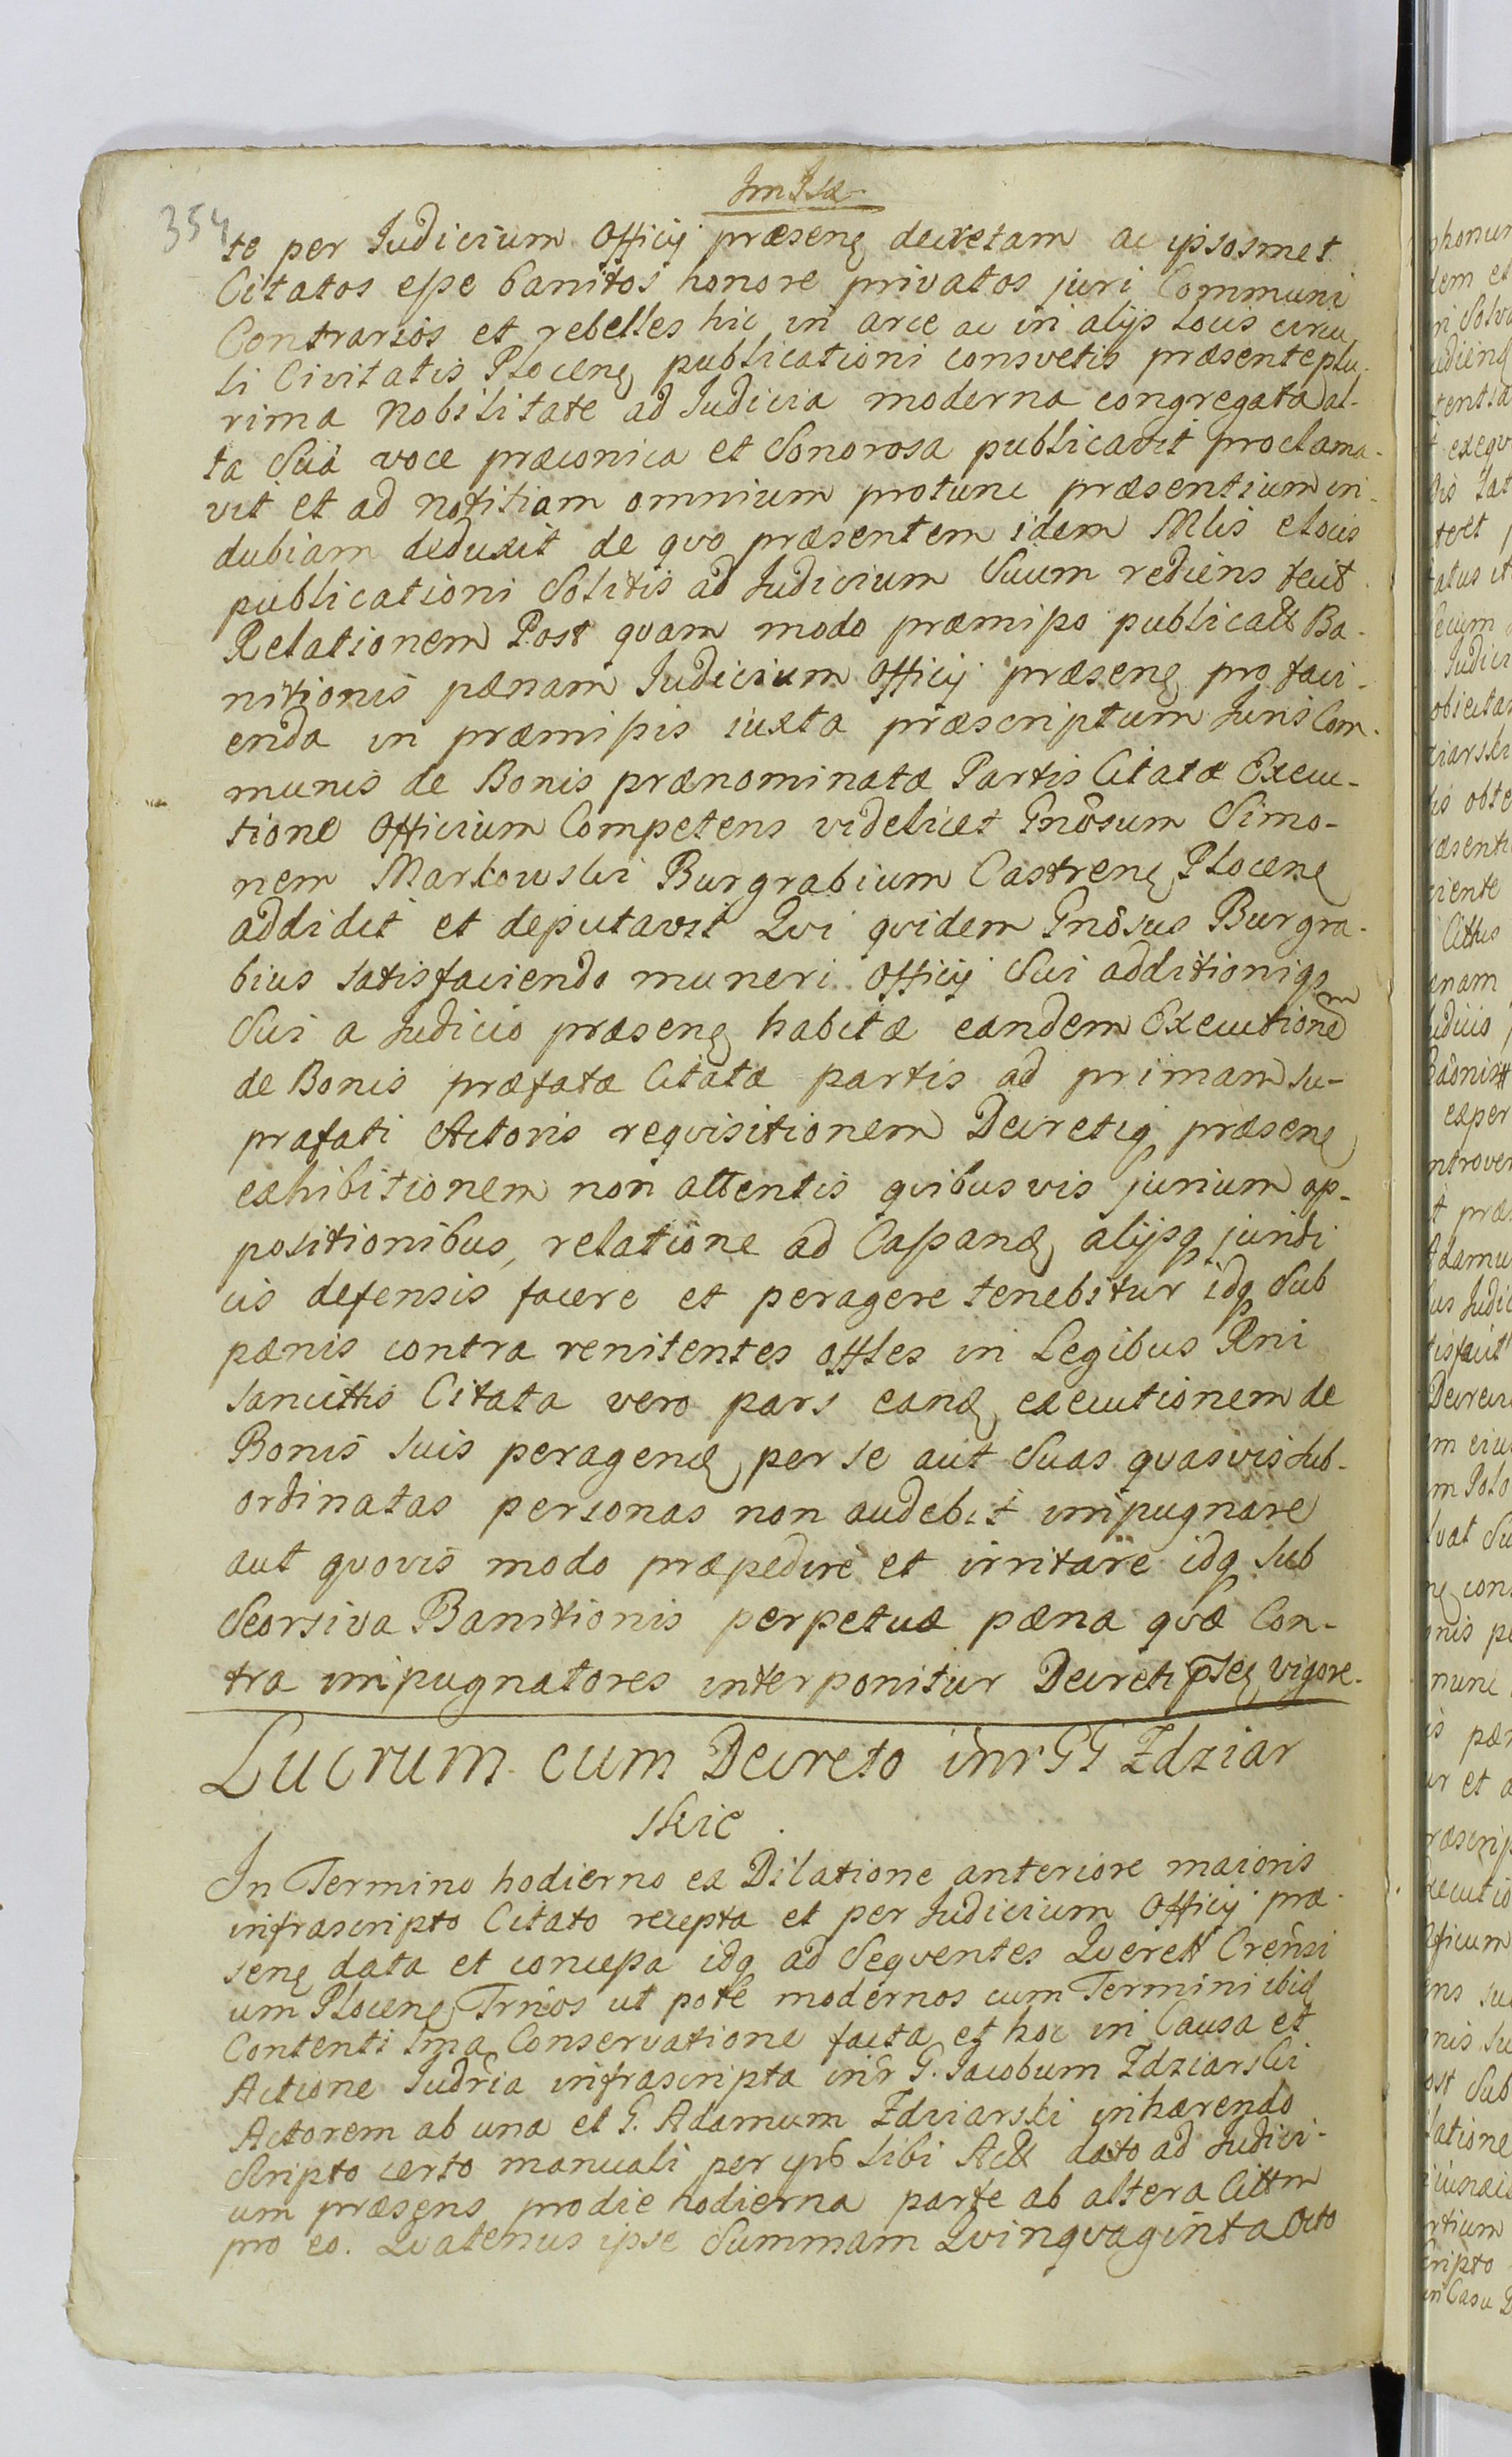 354
te per Judicium Officij præsenę decretam ac ipsosmet
Citatos esse banitos honore privatos juri Communi
Contrarios et rebelles hic in arce ac in alijs Locis circu
li Civitatis Plocenę publicationi consvetis præsente plu-
rima Nobilitate ad Judicia moderna congregata al-
ta Sua voce præconica et Sonorosa publicavit proclama-
vit et ad notitiam omnium protunc præsentium in-
dubiam deduxit de qvo præsentem idem Mlis e locis
publicationi Solitis ad Judicium Suum rediens fecit
Relationem Post qvam modo præmisso publicatæ Ba-
nitionis pænam Judicium Officij præsenę pro faci-
enda in præmissis iuxta præscriptum Juris Com-
munis de Bonis prænominatæ Partis Citatæ Execu-
tione Officium Competens videlicet Gnosum Simo-
nem Markowski Burgrabium Castrenę Plocenę
addidit et deputavit Qvi qvidem Gnosus Burgra-
bius satisfaciendo muneri Officij Sui additioniqꝫ
Sui a Judicio præsenę habitæ eandem Executionem
de Bonis præfatæ Citatæ partis ad primam su-
prafati Actoris reqvisitionem Decretiqꝫ præsenę
exhibitionem non attentis qvibusvis jurium op-
positionibus, relatione ad Cassandę alijsqꝫ juridi
cis defensis facere et peragere tenebitur idqꝫ Sub
pænis contra renitentes offles in Legibus Rni
sancittis Citata vero pars eandę executionem de
Bonis suis peragendę per se aut Suas qvasvis Sub-
ordinatas personas non audebit impugnare
aut qvovis modo præpedire et irritare idqꝫ sub
Seorsiva Banitionis perpetuæ pæna qvæ Con-
tra impugnatores interponitur Decreti pseę vigore.
Lucrum cum Decreto intr GG Zdziar
skie
In Termino hodierno ex Dilatione anteriore maioris
infrascripto Citato recepta et per Judicium Officij præ-
senę data et concessa idqꝫ ad Seqventes Qverell Crensi
um Plocenę Trnos ut pote modernos cum Termini ibid
Contenti Ima Conservatione facta et hoc in Causa et
Actione Judria infrascripta intr G. Jacobum Zdziarski
Actorem ab una et G. Adamum Zdziarski inhærendo
Scripto certo manuali per ipsę sibi Act dato ad Judici-
um præsens pro die hodierna parte ab altera Cittm
pro eo. Qvatenus ipse Summam Qvinqvaginta Octo